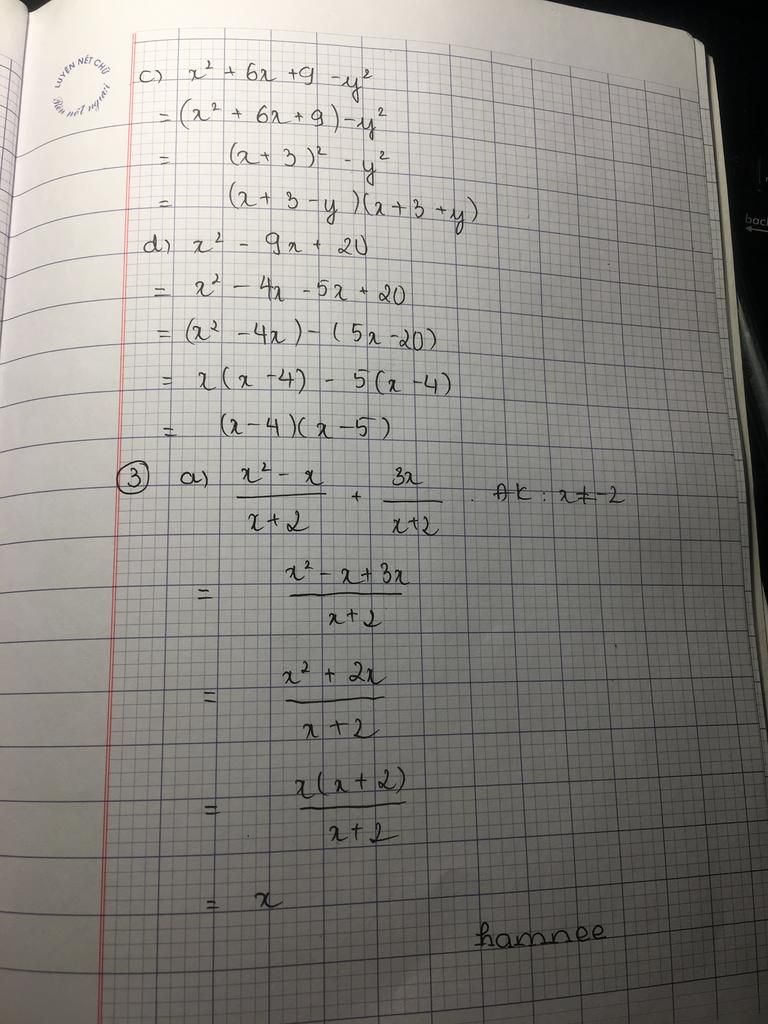 LUYỆN NÉT CHỮ
Rèn nết người
c) x² + 6x + 9 - y²
= (x² + 6x + 9) - y²
= (x + 3)² - y²
= (x + 3 - y)(x + 3 + y)
d) x² - 9x + 20
= x² - 4x - 5x + 20
= (x² - 4x) - (5x - 20)
= x(x - 4) - 5(x - 4)
= (x - 4)(x - 5)
③ a) (x² - x)/(x + 2) + 3x/(x + 2). ĐK : x ≠ -2
= (x² - x + 3x)/(x + 2)
= (x² + 2x)/(x + 2)
= x(x + 2)/(x + 2)
= x
hamnee
back